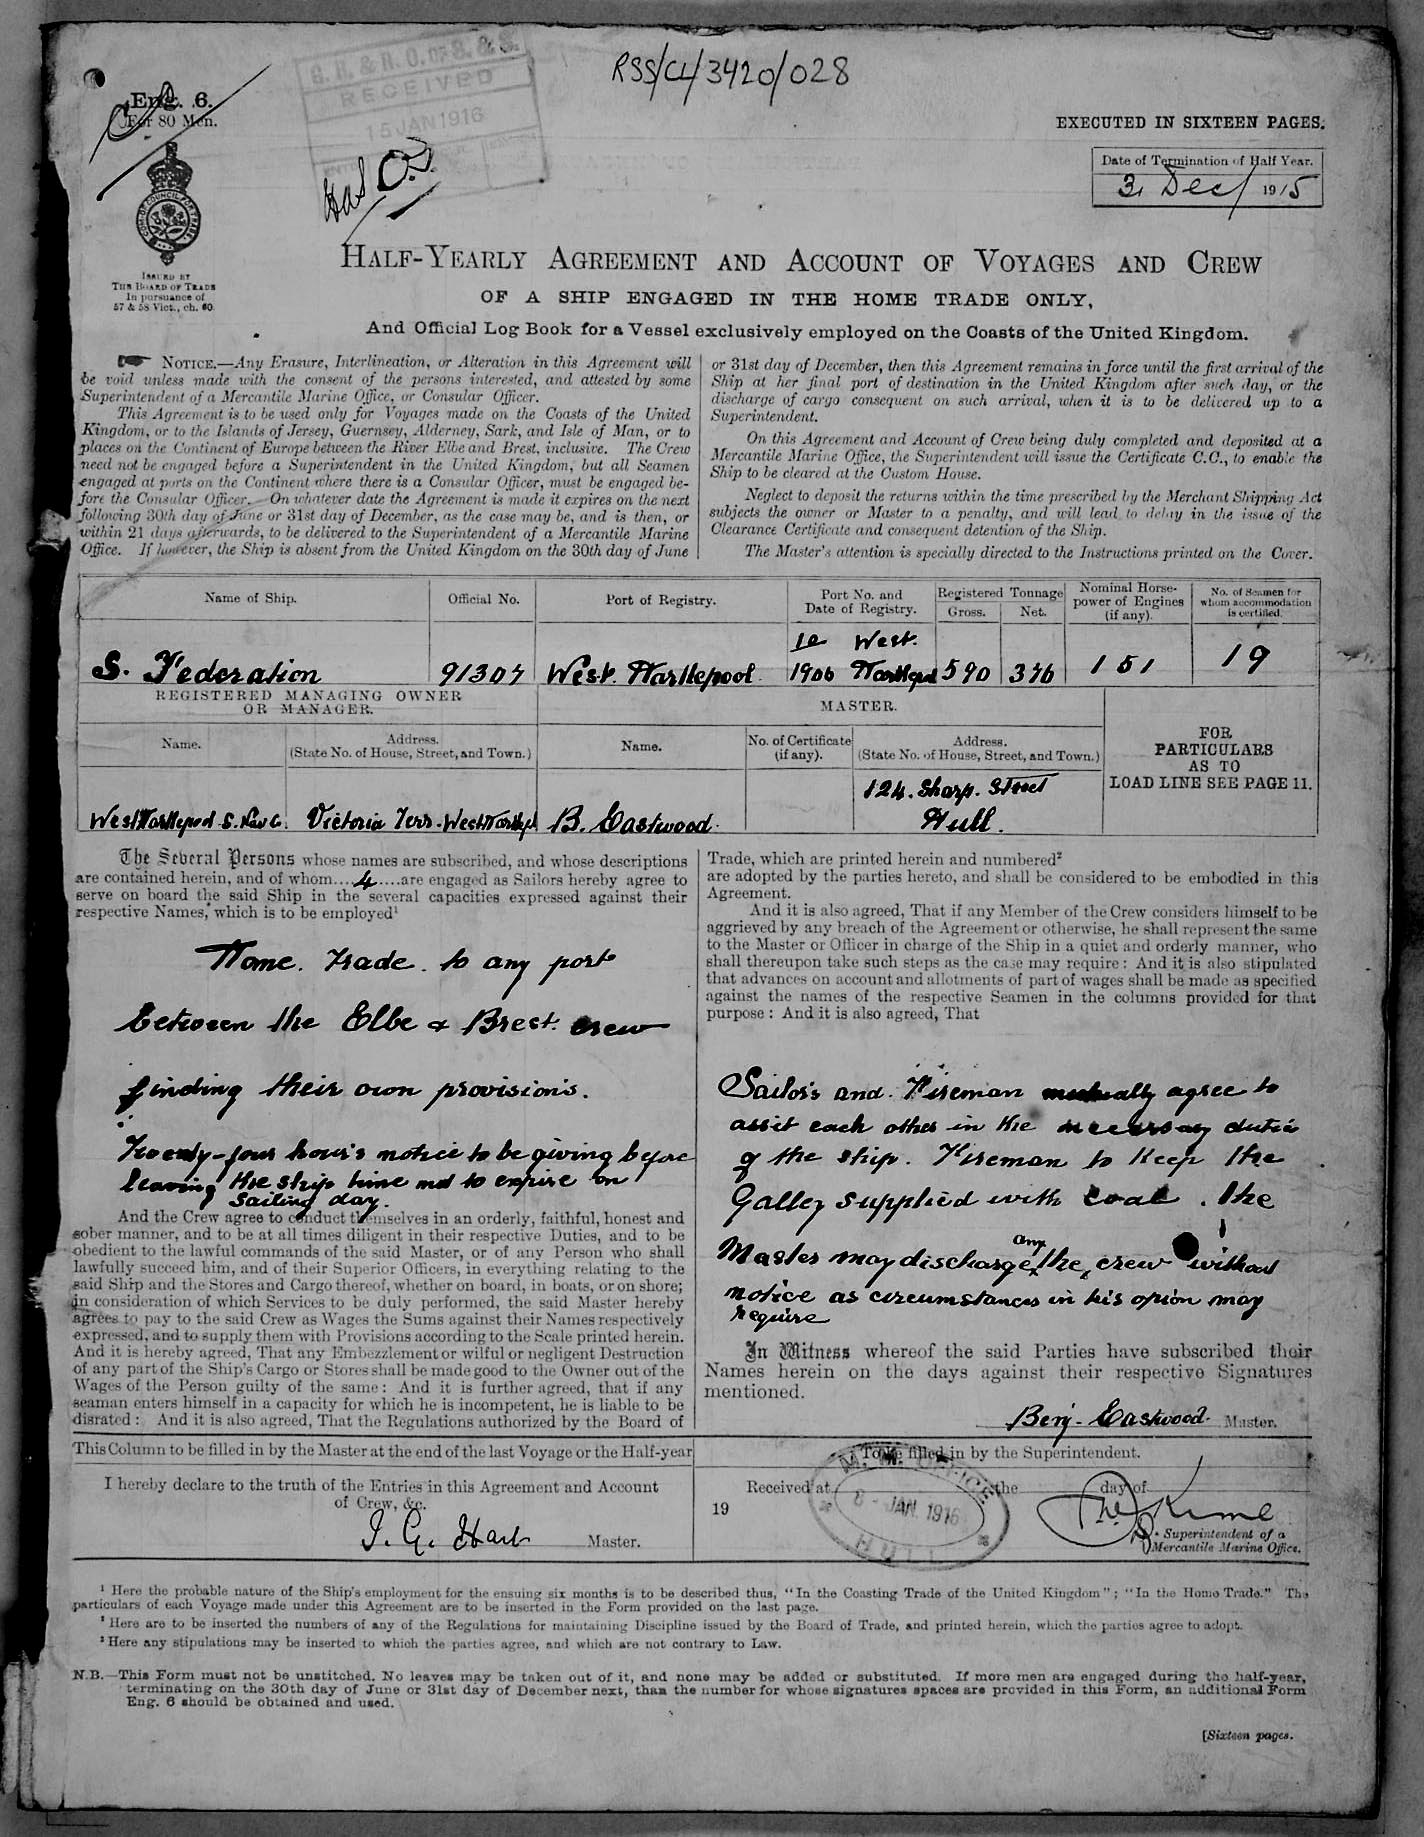 RSS/CL/3420/028
G. R. & R. O. OF S. & S.
RECEIVED
15 JAN 1916
Eng. 6.
For 80 Men.
EXECUTED IN SIXTEEN PAGES.
Date of Termination of Half Year.
31 Dec/ 1915
Has O.S.
ISSUED BY
THE BOARD OF TRADE
In pursuance of
57 & 58 Vict., ch. 60
HALF-YEARLY AGREEMENT AND ACCOUNT OF VOYAGES AND CREW
OF A SHIP ENGAGED IN THE HOME TRADE ONLY,
And Official Log Book for a Vessel exclusively employed on the Coasts of the United Kingdom.
NOTICE.—Any Erasure, Interlineation, or Alteration in this Agreement will
be void unless made with the consent of the persons interested, and attested by some
Superintendent of a Mercantile Marine Office, or Consular Officer.
This Agreement is to be used only for Voyages made on the Coasts of the United
Kingdom, or to the Islands of Jersey, Guernsey, Alderney, Sark, and Isle of Man, or to
places on the Continent of Europe between the River Elbe and Brest, inclusive. The Crew
need not be engaged before a Superintendent in the United Kingdom, but all Seamen
engaged at ports on the Continent where there is a Consular Officer, must be engaged be-
fore the Consular Officer. On whatever date the Agreement is made it expires on the next
following 30th day of June or 31st day of December, as the case may be, and is then, or
within 21 days afterwards, to be delivered to the Superintendent of a Mercantile Marine
Office. If however, the Ship is absent from the United Kingdom on the 30th day of June
or 31st day of December, then this Agreement remains in force until the first arrival of the
Ship at her final port of destination in the United Kingdom after such day, or the
discharge of cargo consequent on such arrival, when it is to be delivered up to a
Superintendent.
On this Agreement and Account of Crew being duly completed and deposited at a
Mercantile Marine Office, the Superintendent will issue the Certificate C.C., to enable the
Ship to be cleared at the Custom House.
Neglect to deposit the returns within the time prescribed by the Merchant Shipping Act
subjects the owner or Master to a penalty, and will lead to delay in the issue of the
Clearance Certificate and consequent detention of the Ship.
The Master's attention is specially directed to the Instructions printed on the Cover.
Name of Ship. Official No. Port of Registry. Port No. and Date of Registry. Registered Tonnage Gross. Net. Nominal Horse-power of Engines (if any). No. of Seamen for whom accommodation is certified.
10 West
S. Federation 91307 West Hartlepool 1906 Hartlepool 590 376 151 19
REGISTERED MANAGING OWNER
OR MANAGER.
MASTER.
Name. Address. (State No. of House, Street, and Town.) Name. No. of Certificate (if any). Address. (State No. of House, Street, and Town.)
FOR
PARTICULARS
AS TO
LOAD LINE SEE PAGE 11.
124. Sharp. Street
West Hartlepool S. Nav Co. Victoria Terr. West Hartlepl B. Eastwood. Hull.
The Several Persons whose names are subscribed, and whose descriptions
are contained herein, and of whom....4....are engaged as Sailors hereby agree to
serve on board the said Ship in the several capacities expressed against their
respective Names, which is to be employed¹
Home. Trade. to any port
between the Elbe & Brest. crew
finding their own provisions.
Twenty-four hour's notice to be giving before
leaving the ship time not to expire on
sailing day.
And the Crew agree to conduct themselves in an orderly, faithful, honest and
sober manner, and to be at all times diligent in their respective Duties, and to be
obedient to the lawful commands of the said Master, or of any Person who shall
lawfully succeed him, and of their Superior Officers, in everything relating to the
said Ship and the Stores and Cargo thereof, whether on board, in boats, or on shore;
in consideration of which Services to be duly performed, the said Master hereby
agrees to pay to the said Crew as Wages the Sums against their Names respectively
expressed, and to supply them with Provisions according to the Scale printed herein.
And it is hereby agreed, That any Embezzlement or wilful or negligent Destruction
of any part of the Ship's Cargo or Stores shall be made good to the Owner out of the
Wages of the Person guilty of the same: And it is further agreed, that if any
seaman enters himself in a capacity for which he is incompetent, he is liable to be
disrated: And it is also agreed, That the Regulations authorized by the Board of
Trade, which are printed herein and numbered²
are adopted by the parties hereto, and shall be considered to be embodied in this
Agreement.
And it is also agreed, That if any Member of the Crew considers himself to be
aggrieved by any breach of the Agreement or otherwise, he shall represent the same
to the Master or Officer in charge of the Ship in a quiet and orderly manner, who
shall thereupon take such steps as the case may require: And it is also stipulated
that advances on account and allotments of part of wages shall be made as specified
against the names of the respective Seamen in the columns provided for that
purpose: And it is also agreed, That
Sailors and. Fireman mutually agree to
assit each other in the necessary duties
of the ship. Fireman to keep the
Galley supplied with coal. The
Master may discharge any the crew without
notice as circumstances in his opion may
require
In Witness whereof the said Parties have subscribed their
Names herein on the days against their respective Signatures
mentioned.
Benj. Eastwood. Master.
This Column to be filled in by the Master at the end of the last Voyage or the Half-year
I hereby declare to the truth of the Entries in this Agreement and Account
of Crew, &c.
J. G. Hart Master.
To be filled in by the Superintendent.
Received at the day of
19
M. M. OFFICE
8 - JAN. 1916
HULL
Superintendent of a
Mercantile Marine Office.
¹ Here the probable nature of the Ship's employment for the ensuing six months is to be described thus, "In the Coasting Trade of the United Kingdom"; "In the Home Trade." The
particulars of each Voyage made under this Agreement are to be inserted in the Form provided on the last page.
² Here are to be inserted the numbers of any of the Regulations for maintaining Discipline issued by the Board of Trade, and printed herein, which the parties agree to adopt.
³ Here any stipulations may be inserted to which the parties agree, and which are not contrary to Law.
N.B.—This Form must not be unstitched. No leaves may be taken out of it, and none may be added or substituted. If more men are engaged during the half-year,
terminating on the 30th day of June or 31st day of December next, than the number for whose signatures spaces are provided in this Form, an additional Form
Eng. 6 should be obtained and used.
[Sixteen pages.